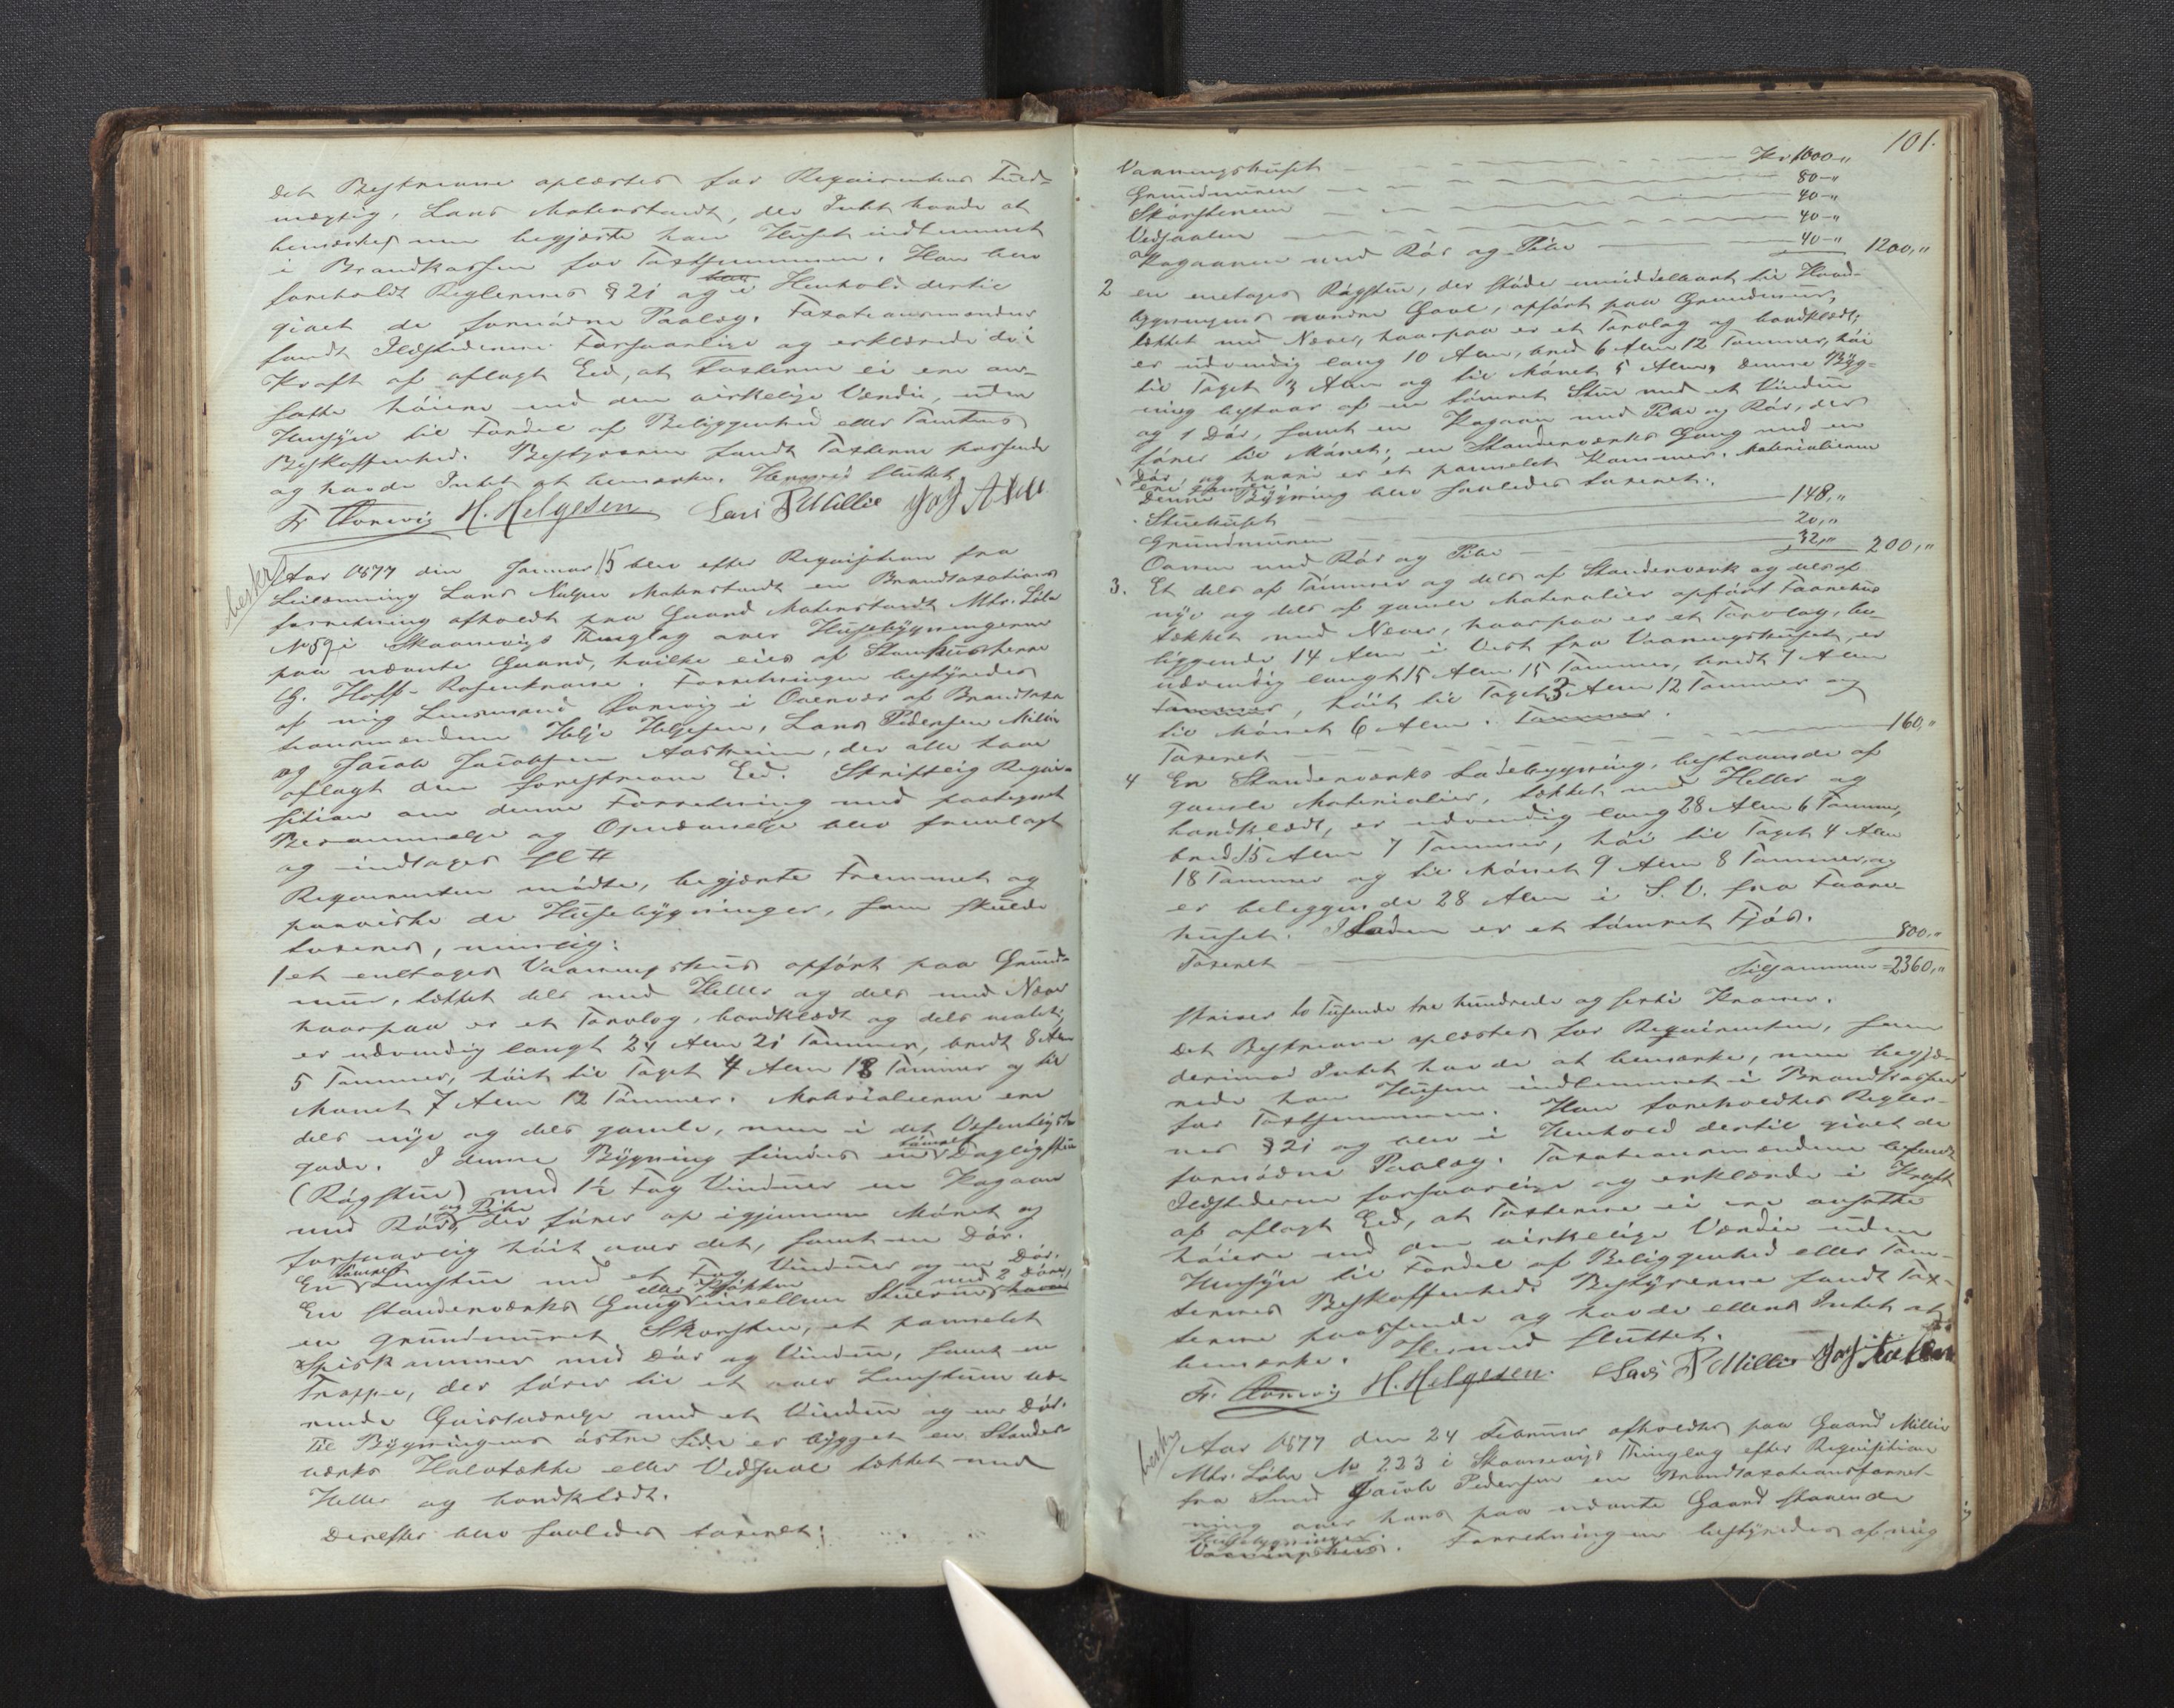 Det Beskrevne oplæstes for Reqvirentens Fuld-
mægtig, Lars Materstandt, der Intet havde at
bemærke, men begjærte han Huset indlemmet
i Brandkassen for Taxtsummen. Han blev
foreholdt Reglernes § 21 og i Henhold dertil
givet de fornødne Paalæg. Taxationsmændene
fandt Ildstederne forsvarlige og erklærede i
Kraft af aflagt Eed, at Taxterne ei ere an-
satte høiere end den virkelige Værdie, uden
Hensyn til Fordel af Beliggenhed eller Tomtens
Beskaffenhed. Bestyreren fandt Taxterne passende
og havde Intet at bemærke. Hermed sluttet
Fr H. Helgesen Lars P Millie
beskr
Aar 1877 den Januar 15 blev efter Reqvisition fra
Leilænding Lars Matenstandt en Brandtaxations
forretning afholdt paa Gaard Matenstandt Mtr. Løbe
No 59 i Skaanevigs Thinglag over Husebygningerne
paa nævnte Gaard, hvilke eies af Stamhusherre
G. Hoff-Rosenkrone. Forretningen bestyredes
af mig Lensmand i Overvær af Brandtaxa
tionsmændene Helje Heljesen, Lars Pedersen Milie
og Jacob Jacobsen, der alle have
aflagt den foreskrevne Eed. Skriftlig Reqvi-
sition om denne Forretning med paategnet
Berammelse og Opnævnelse blev fremlagt
og indtages #
Reqvirenten mødte, begjærte Fremmet og
paaviste de Husebygninger, som skulde
taxeres, nemlig:
1 et enetages Vaaningshus opført paa Grund-
mur, tækket dels med Heller og dels med Næver
hvorpaa er et Torvlag, bordklædt og dels malet;
er udvendig langt 24 Alen 21 Tommer, bredt 8 Alen
5 Tommer, høit til Taget 4 Alen 18 Tommer og til
Mønet 7 Alen 12 Tommer. Materialierne ere
dels nye og dels gamle, men i det Væsentligste
gode. I denne Bygning findes en tømret Dagligstue
(Røgstue) med 1½ Fag Vinduer en Kogeovn
med Rør og Pibe, der fører op igjennem Mønet og
forsvarlig høit over det, samt en Dør.
En tømret Lemstue med et Fag Vinduer og en Dør.
En standerværks Gang eller Kjøkken imellem Stuerne med 2 Døre,
en grundmuret Skorsten, et pannelet
Spiskammer med Dør og Vindue, samt en
Trappe, der fører til et over Lemstuen væ-
rende Gaistværelse med et Vindue og en Dør.
Til Bygningens østre Side er bygget en Stander-
værks Halvtække eller Vedsval tækket med
Heller og bordklædt.
Derefter blev saaledes taxeret:
101.
Vaaningshuset Kr 1000-"
Grundmuren 80-"
Skorstenen 40-"
Vedsvalen 40-"
Kogeovnen med Rør og Pibe 40-" 1200,"
2 en enetages Røgstue, der støder umiddelbart til Hoved-
bygningens nordre Gavl, opført paa Grundmur,
tækket med Næver, hvorpaa er et Torvlag og bordklædt;
er udvendig lang 10 Alen, bred 6 Alen 12 Tommer, høi
til Taget 3 Alen og til Mønet 5 Alen. Denne Byg-
ning bestaar af en tømret Stue med et Vindue
og 1 Dør, samt en Kogeovn med Pibe og Rør, der
fører til Mønet; en Standerværks Gang med en
Dør og hvori er et pannelet Kammer. Materialierne
ere gamle.
Denne Bygning blev saaledes taxeret:
Stuehuset 148,"
Grundmuren 20,"
Ovnen med Rør og Pibe 32,," 200,"
3. Et dels af Tømmer og dels af Standerværk og dels af
nye og dels af gamle Materialier opført Faarehus
tækket med Næver, hvorpaa er et Torvlag, be-
liggende 14 Alen i Vest fra Vaaningshuset, er
udvendig langt 15 Alen 15 Tommer, bredt 7 Alen
Tommer, høit til Taget 3 Alen 12 Tommer og
til Mønet 6 Alen. Tommer.
Taxeret 160,"
4 En Standerværks Ladebygning, bestaaende af
gamle Materialier, tækket med Heller og
bordklædt, er udvendig lang 28 Alen 6 Tommer,
bred 15 Alen 7 Tommer, høi til Taget 4 Alen
18 Tommer og til Mønet 9 Alen 8 Tommer, og
er beliggende 28 Alen i S. V. fra Faare-
huset. I Laden er et tømret Fjøs.
Taxeret 800,"
Tilsammen = 2360,"
skriver to Tusende tre hundrede og sexti Kroner.
Det Beskrevne oplæstes for Reqvirenten, som
derimod Intet havde at bemærke, men begjæ-
rede han Husene indlemmet i Brandkassen
for Taxtsummen. Han foreholdtes Regler-
nes § 21 og blev i Henhold dertil givet de
fornødne Paalæg. Taxationsmændene befandt
Ildstederne forsvarlige og erklærede i Kraft
af aflagt Eed, at Taxterne ei ere ansatte
høiere end den virkelige Værdie uden
Hensyn til Fordel af Beliggenhed eller Tom-
ternes Beskaffenhed. Bestyreren fandt Tax-
terne passende og havde ellers Intet at
bemærke. Hermed sluttet.
Fr. H. Helgesen. Lars P Millie
beskr
Aar 1877 den 24 Februar afholdtes paa Gaard Millie
Mtr. Løbe No 223 i Skaanevigs Thinglag efter Reqvisition
fra Smed Jacob Pedersen en Brandtaxationsforret-
ning over hans paa nævnte Gaard staaende
Husebygninger
Vaaningshus. Forretningen bestyredes af mig